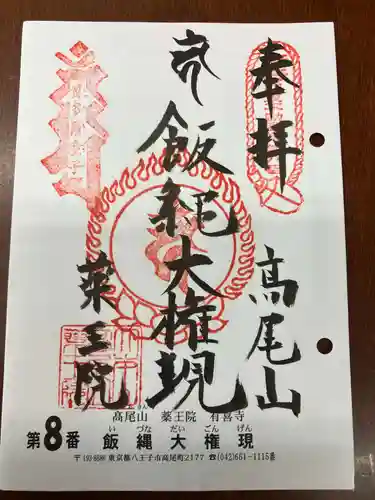 奉拝
高尾山
飯縄大権現
薬王院
高尾山 薬王院 有喜寺
第8番 飯縄大権現
いづな だい ごん げん
〒193-8686 東京都八王子市高尾町2177 ☎(042)661-1115番